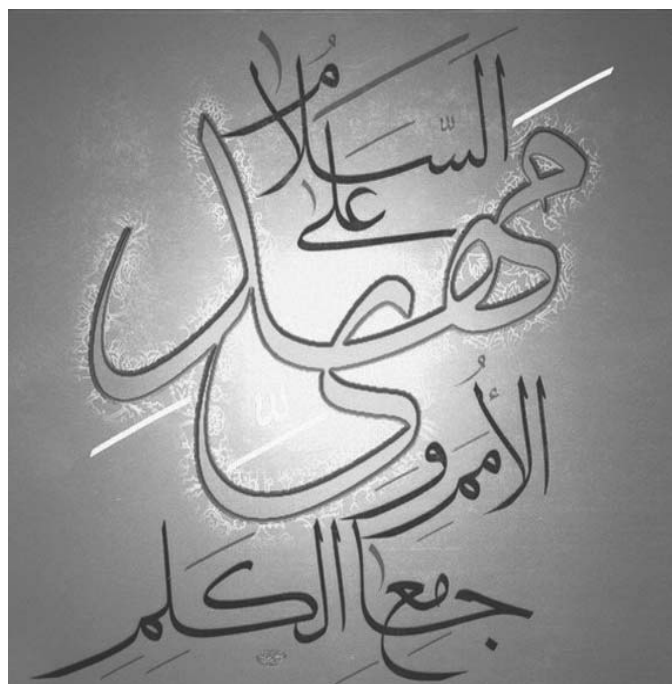 السلام
على
مهدي
الأمم و
جامع الكلم